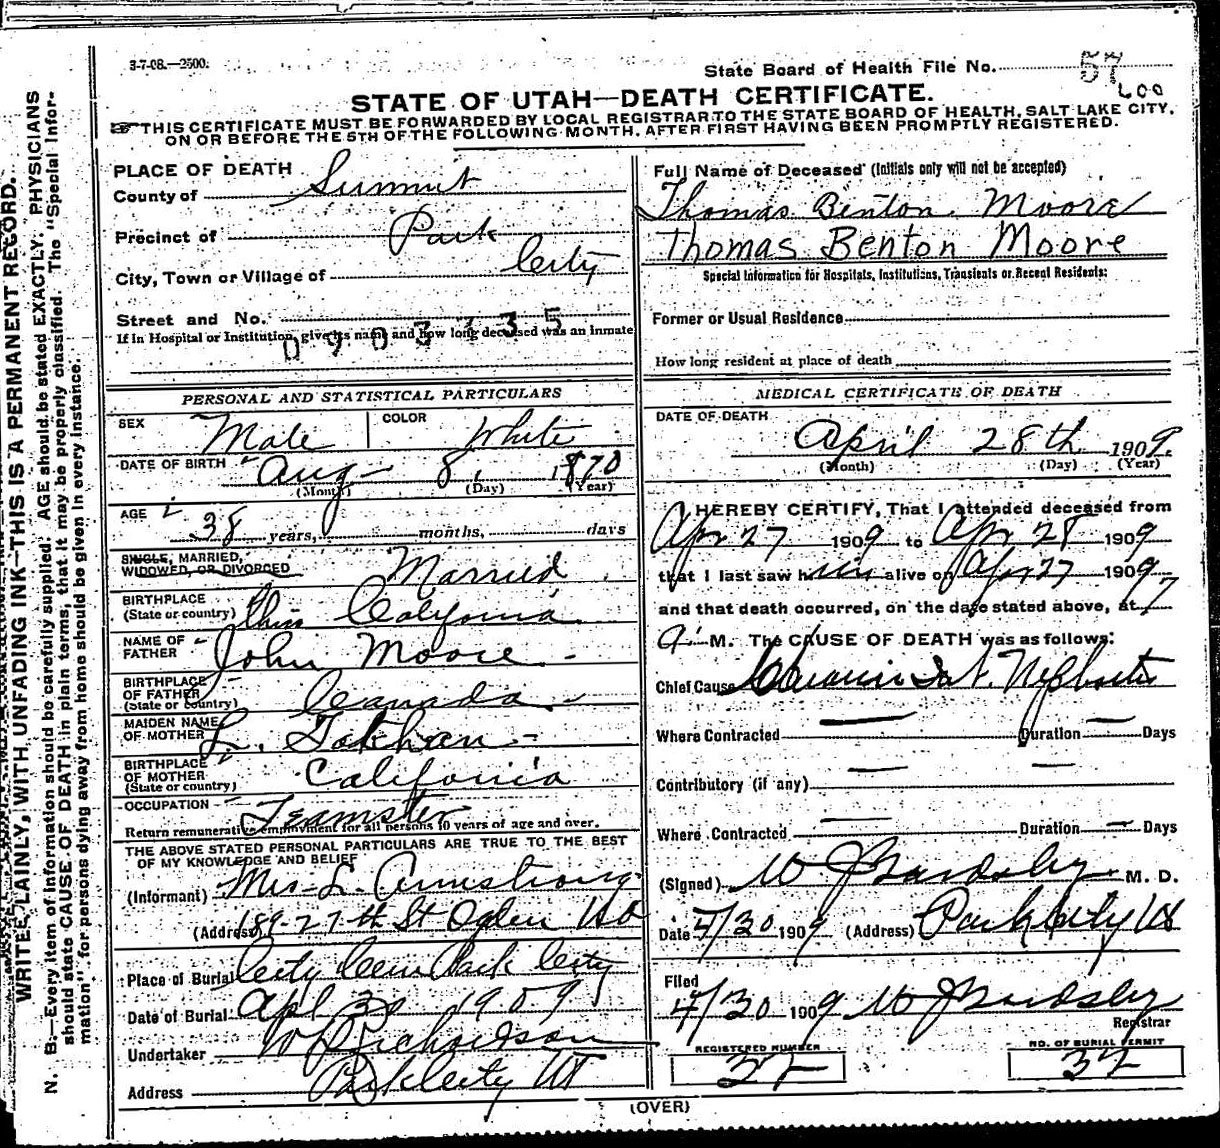 3-7-08.—2500.
State Board of Health File No. 57
600
STATE OF UTAH—DEATH CERTIFICATE.
THIS CERTIFICATE MUST BE FORWARDED BY LOCAL REGISTRAR TO THE STATE BOARD OF HEALTH, SALT LAKE CITY,
ON OR BEFORE THE 5TH OF THE FOLLOWING MONTH, AFTER FIRST HAVING BEEN PROMPTLY REGISTERED.
WRITE LAINLY, WITH UNFADING INK—THIS IS A PERMANENT RECORD.
N. B.—Every item of information should be carefully supplied. AGE should be stated EXACTLY. PHYSICIANS
should state CAUSE OF DEATH in plain terms, that it may be properly classified. The "Special Infor-
mation" for persons dying away from home should be given in every instance.
PLACE OF DEATH
County of Summit
Precinct of Park
City, Town or Village of City
Street and No.
If in Hospital or Institution, give its name and how long deceased was an Inmate
Full Name of Deceased (Initials only will not be accepted)
Thomas Benton Moore
Thomas Benton Moore
Special Information for Hospitals, Institutions, Transients or Recent Residents:
Former or Usual Residence
How long resident at place of death
PERSONAL AND STATISTICAL PARTICULARS
SEX Male COLOR White
DATE OF BIRTH Aug 8, 1870
(Month) (Day) (Year)
AGE 38 years, months, days
SINGLE, MARRIED,
WIDOWED, OR DIVORCED Married
BIRTHPLACE
(State or country) California
NAME OF
FATHER John Moore
BIRTHPLACE
OF FATHER
(State or country) Canada
MAIDEN NAME
OF MOTHER L.
BIRTHPLACE
OF MOTHER
(State or country) California
OCCUPATION Teamster
Return remunerative employment for all persons 10 years of age and over.
THE ABOVE STATED PERSONAL PARTICULARS ARE TRUE TO THE BEST
OF MY KNOWLEDGE AND BELIEF
(Informant) Mrs L. Armstrong
(Address) 189-27th St Ogden
Place of Burial City Cem Park City
Date of Burial Apl 30 1909
Undertaker W Richardson
Address Park City Ut
MEDICAL CERTIFICATE OF DEATH
DATE OF DEATH
April 28th 1909.
(Month) (Day) (Year)
I HEREBY CERTIFY, That I attended deceased from
Apr 27 1909 to Apr 28 1909
that I last saw him alive on Apr 27 1909
and that death occurred, on the date stated above, at 7
a M. The CAUSE OF DEATH was as follows:
Chief Cause Chronic Int. Nephritis
Where Contracted Duration Days
Contributory (if any)
Where Contracted Duration Days
(Signed) W J Bardsley M. D.
Date 4/30 1909 (Address) Park City Ut
Filed
4/30 1909 W J Bardsley
Registrar
REGISTERED NUMBER
32
NO. OF BURIAL PERMIT
32
(OVER)